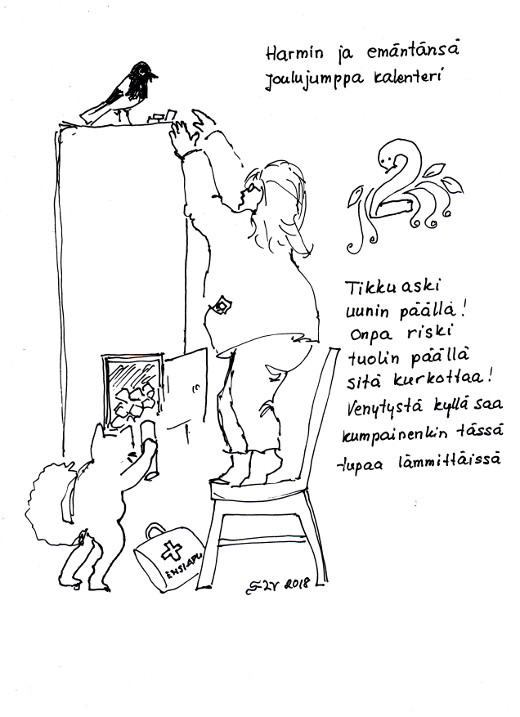 Harmin ja emäntänsä
Joulujumppa kalenteri
2
Tikkuaski
uunin päällä!
Onpa riski
tuolin päällä
sitä kurkottaa!
Venytystä kyllä saa
kumpainenkin tässä
tupaa lämmittäissä
ENSIAPU
2018